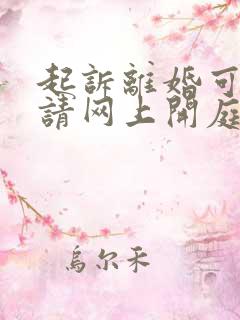 起訴離婚可
請网上開庭
烏尔禾